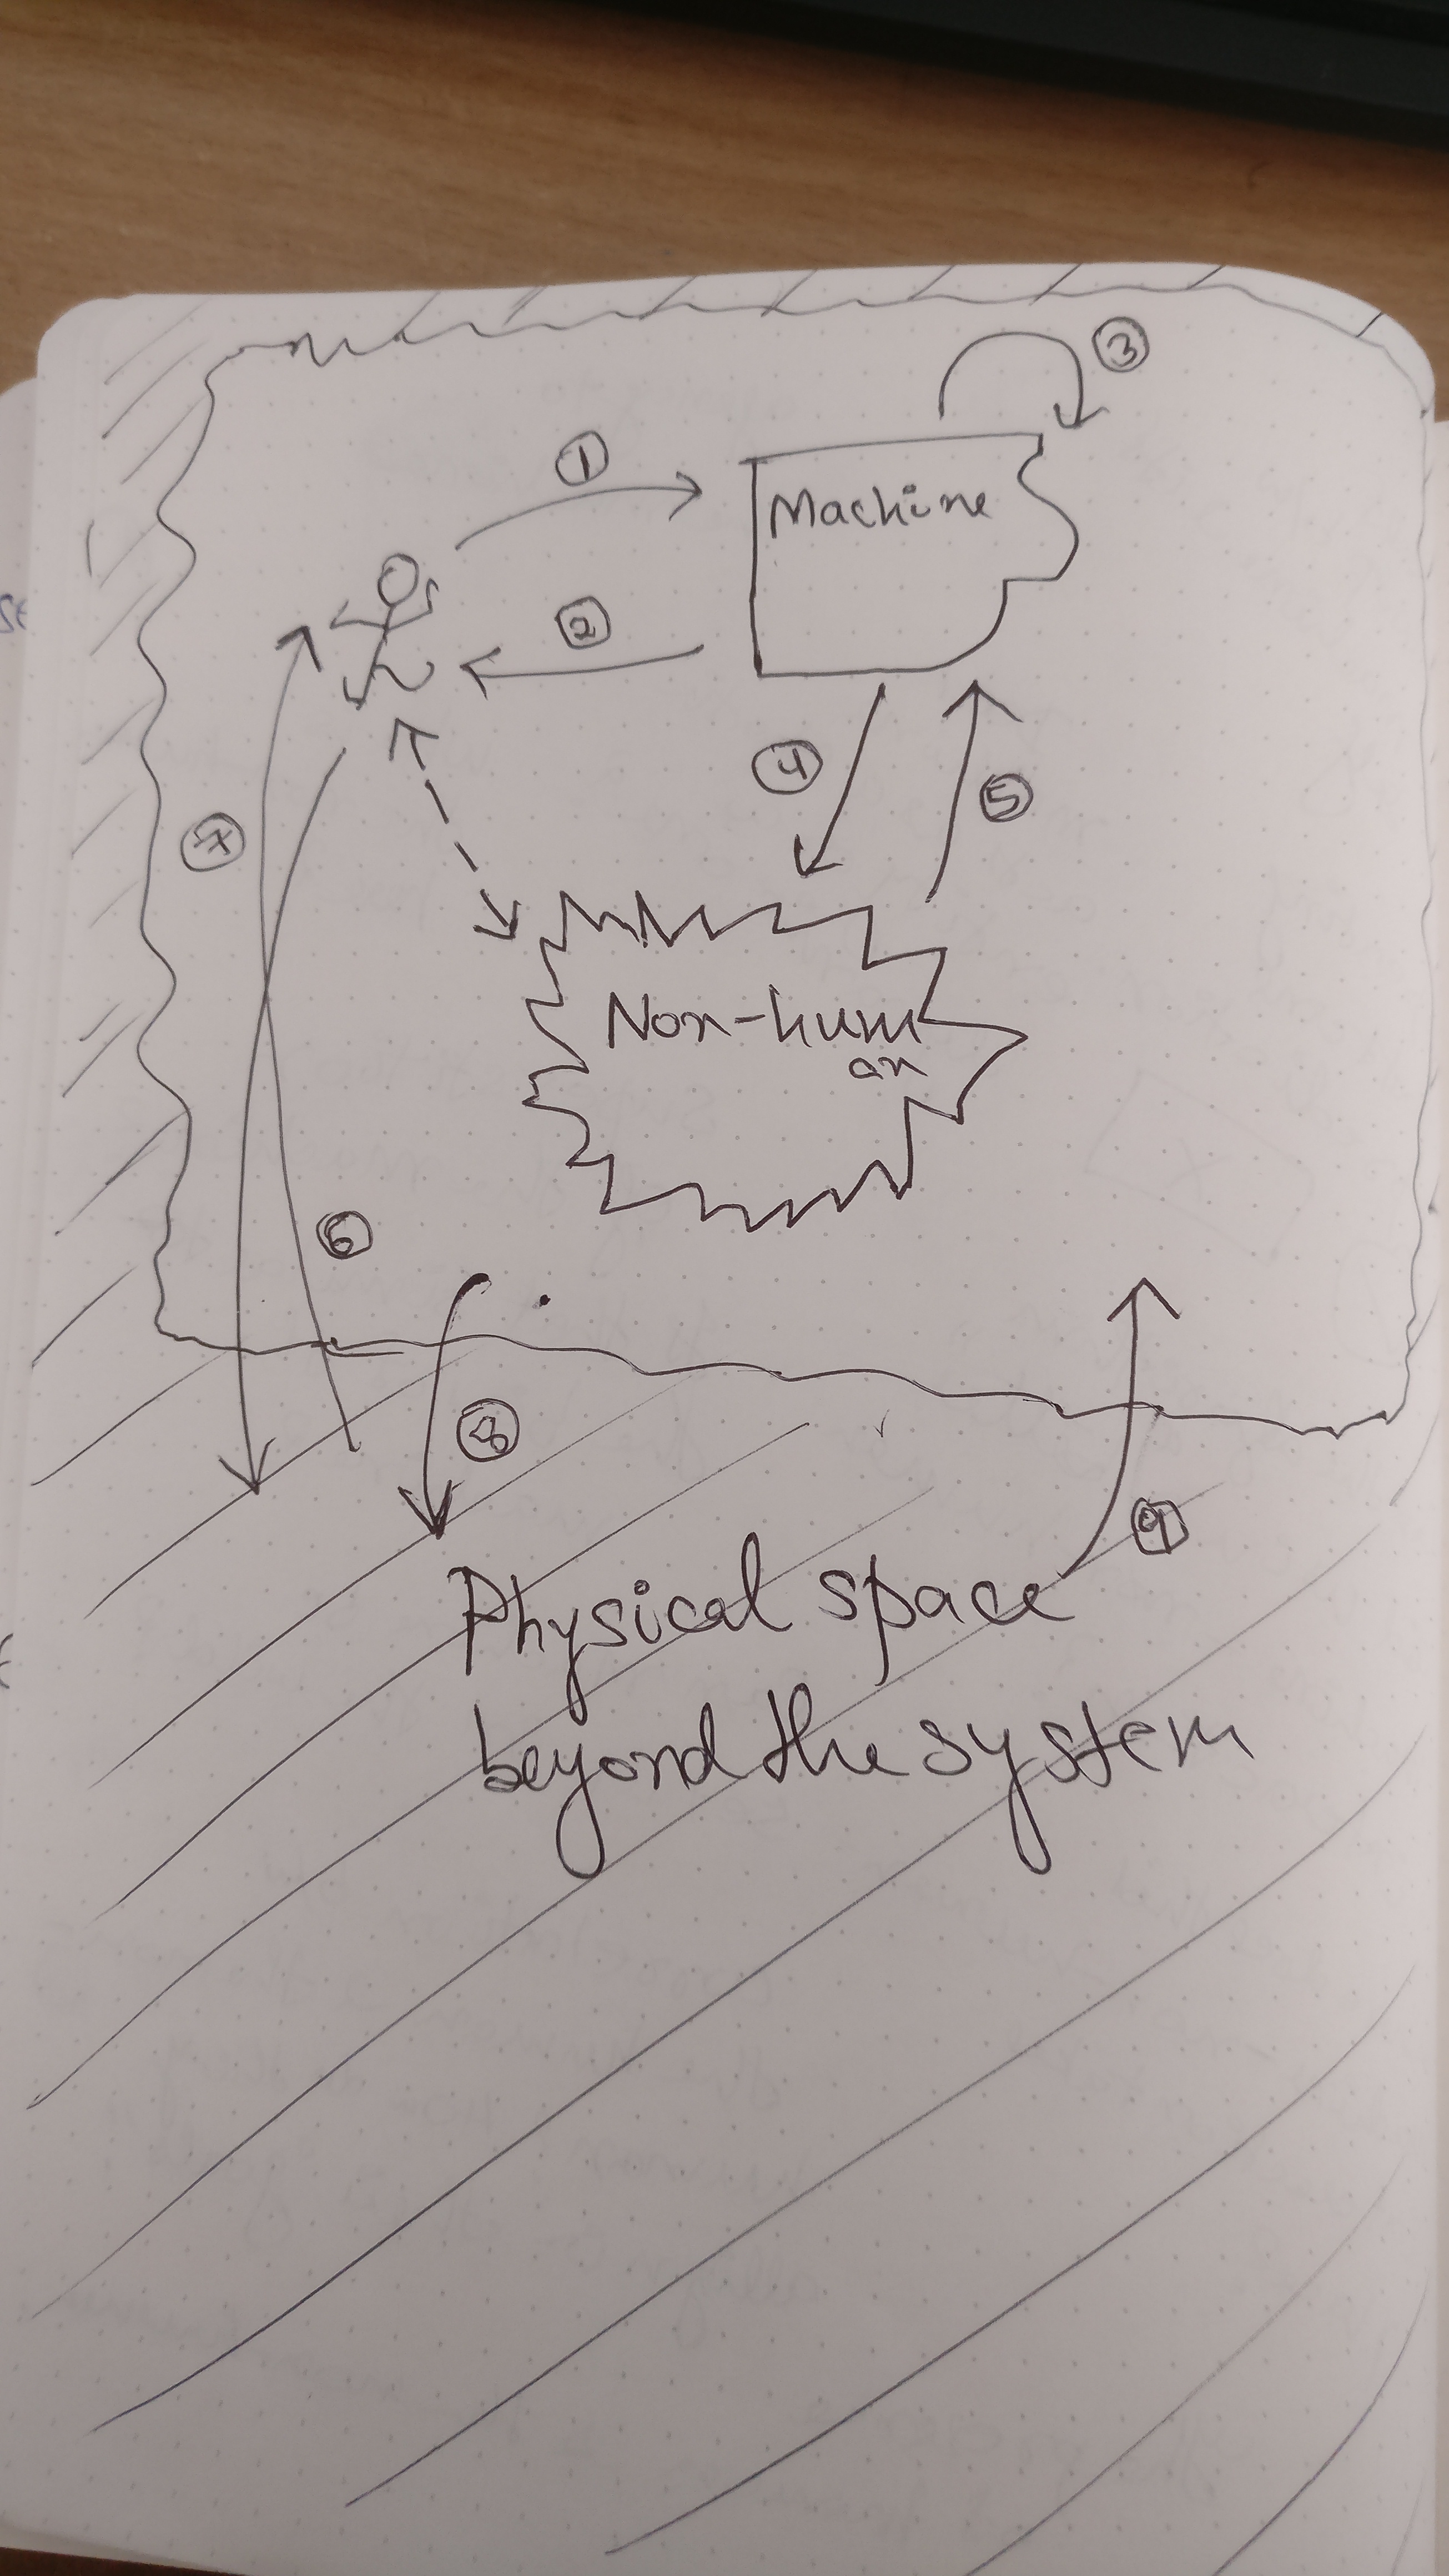 3
1
Machine
2
4
5
7
Non-hum
an
6
8
9
Physical space
beyond the system